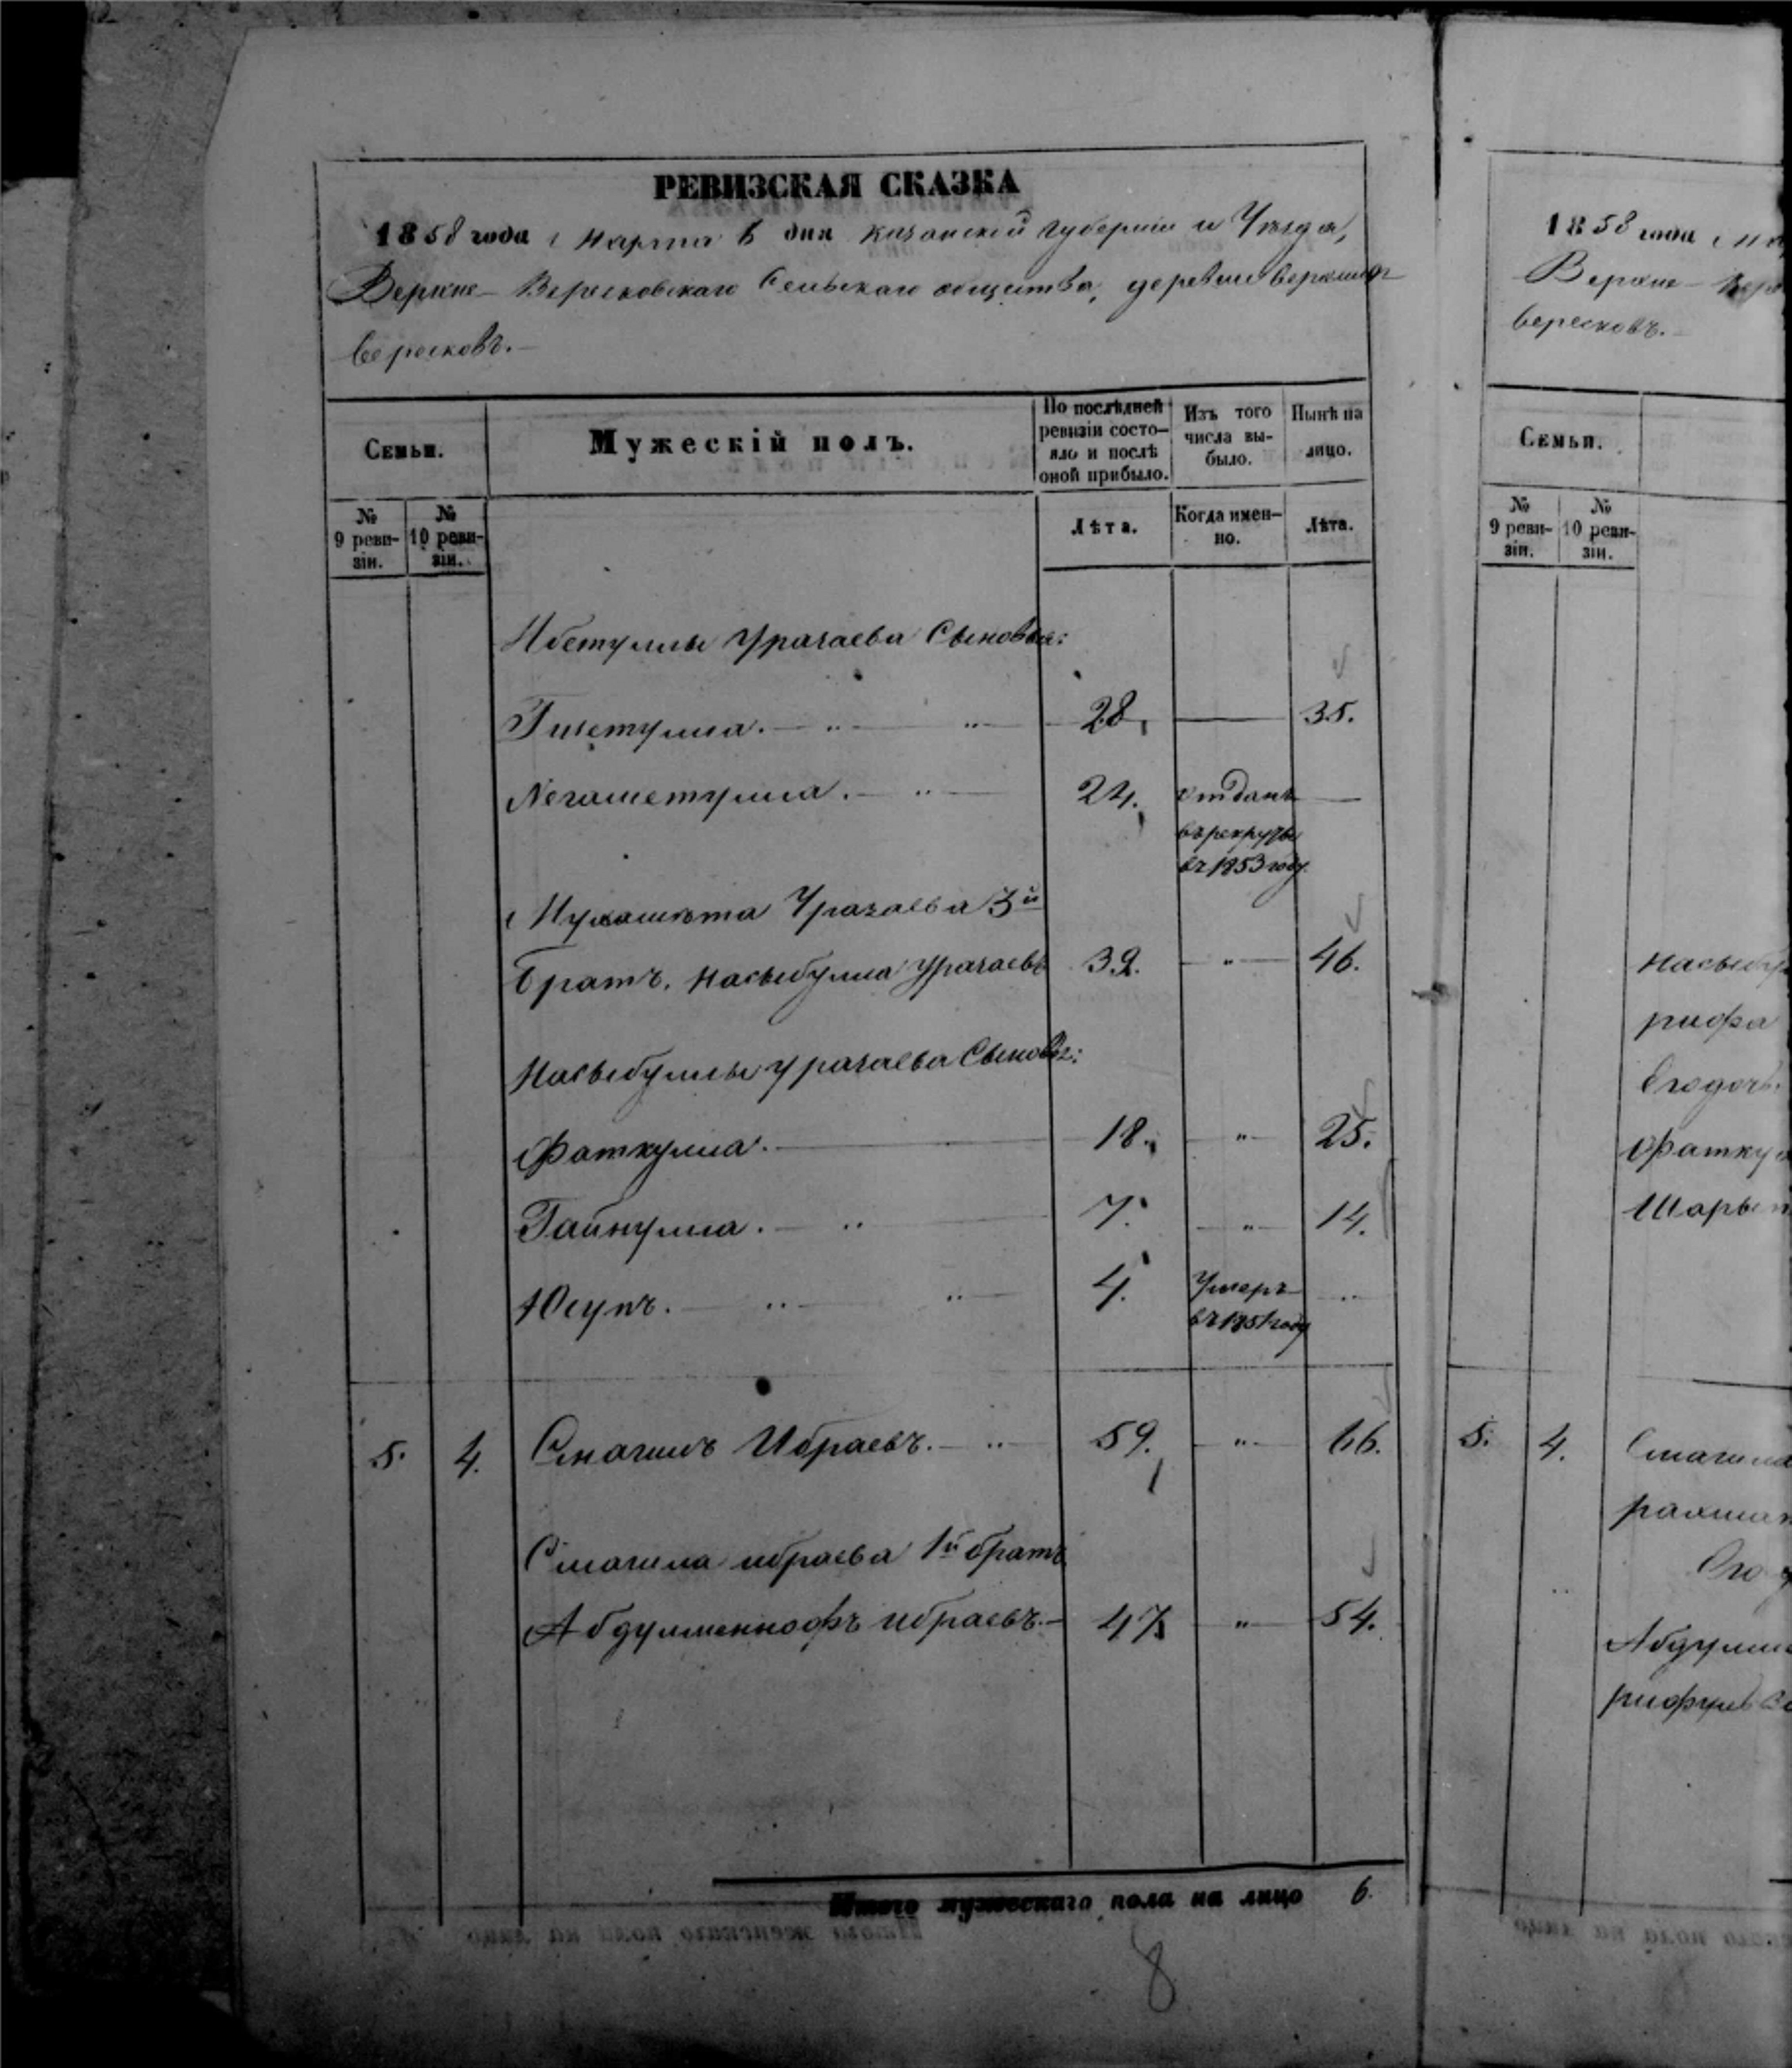 РЕВИЗСКАЯ СКАЗКА
1858 года Марта 6 дня Казанской губернии и Уѣзда,
Верхне-Вересковскаго Сельскаго общества, деревни Верхних
Вересковъ.
Семьи.
Мужескій полъ.
По послѣдней ревизіи состо-
яло и послѣ
оной прибыло.
Изъ того
числа вы-
было.
Нынѣ на
лицо.
№
9 реви-
зіи.
№
10 реви-
зіи.
Лѣта.
Когда имен-
но.
Лѣта.
Ибетуллы Уразаева Сыновья:
28. 35.
24. отданъ
въ рекруты
въ 1853 году
Мухамѣта Уразаева 3й
братъ. Насыбулла Уразаевъ 39. " 46.
Насыбуллы Уразаева Сыновья:
Фаткулла. 18. " 25.
Гайнулла. 7. " 14.
Юсупъ. 4. Умеръ
въ 1851 году
5. 4. Смагилъ Ибраевъ. 59. " 66.
Смагила ибраева 1й братъ
Абдулменнофъ ибраевъ. 47. " 54.
Итого мужескаго пола на лицо 6.
8
1858 года
Верхне-
Вересковъ.
Семьи.
№
9 реви-
зіи.
№
10 реви-
зіи.
Насыбул
рифа
Его дочь
Фатку
Шарып
5. 4. Смагила
рахма
Его
Абдулм